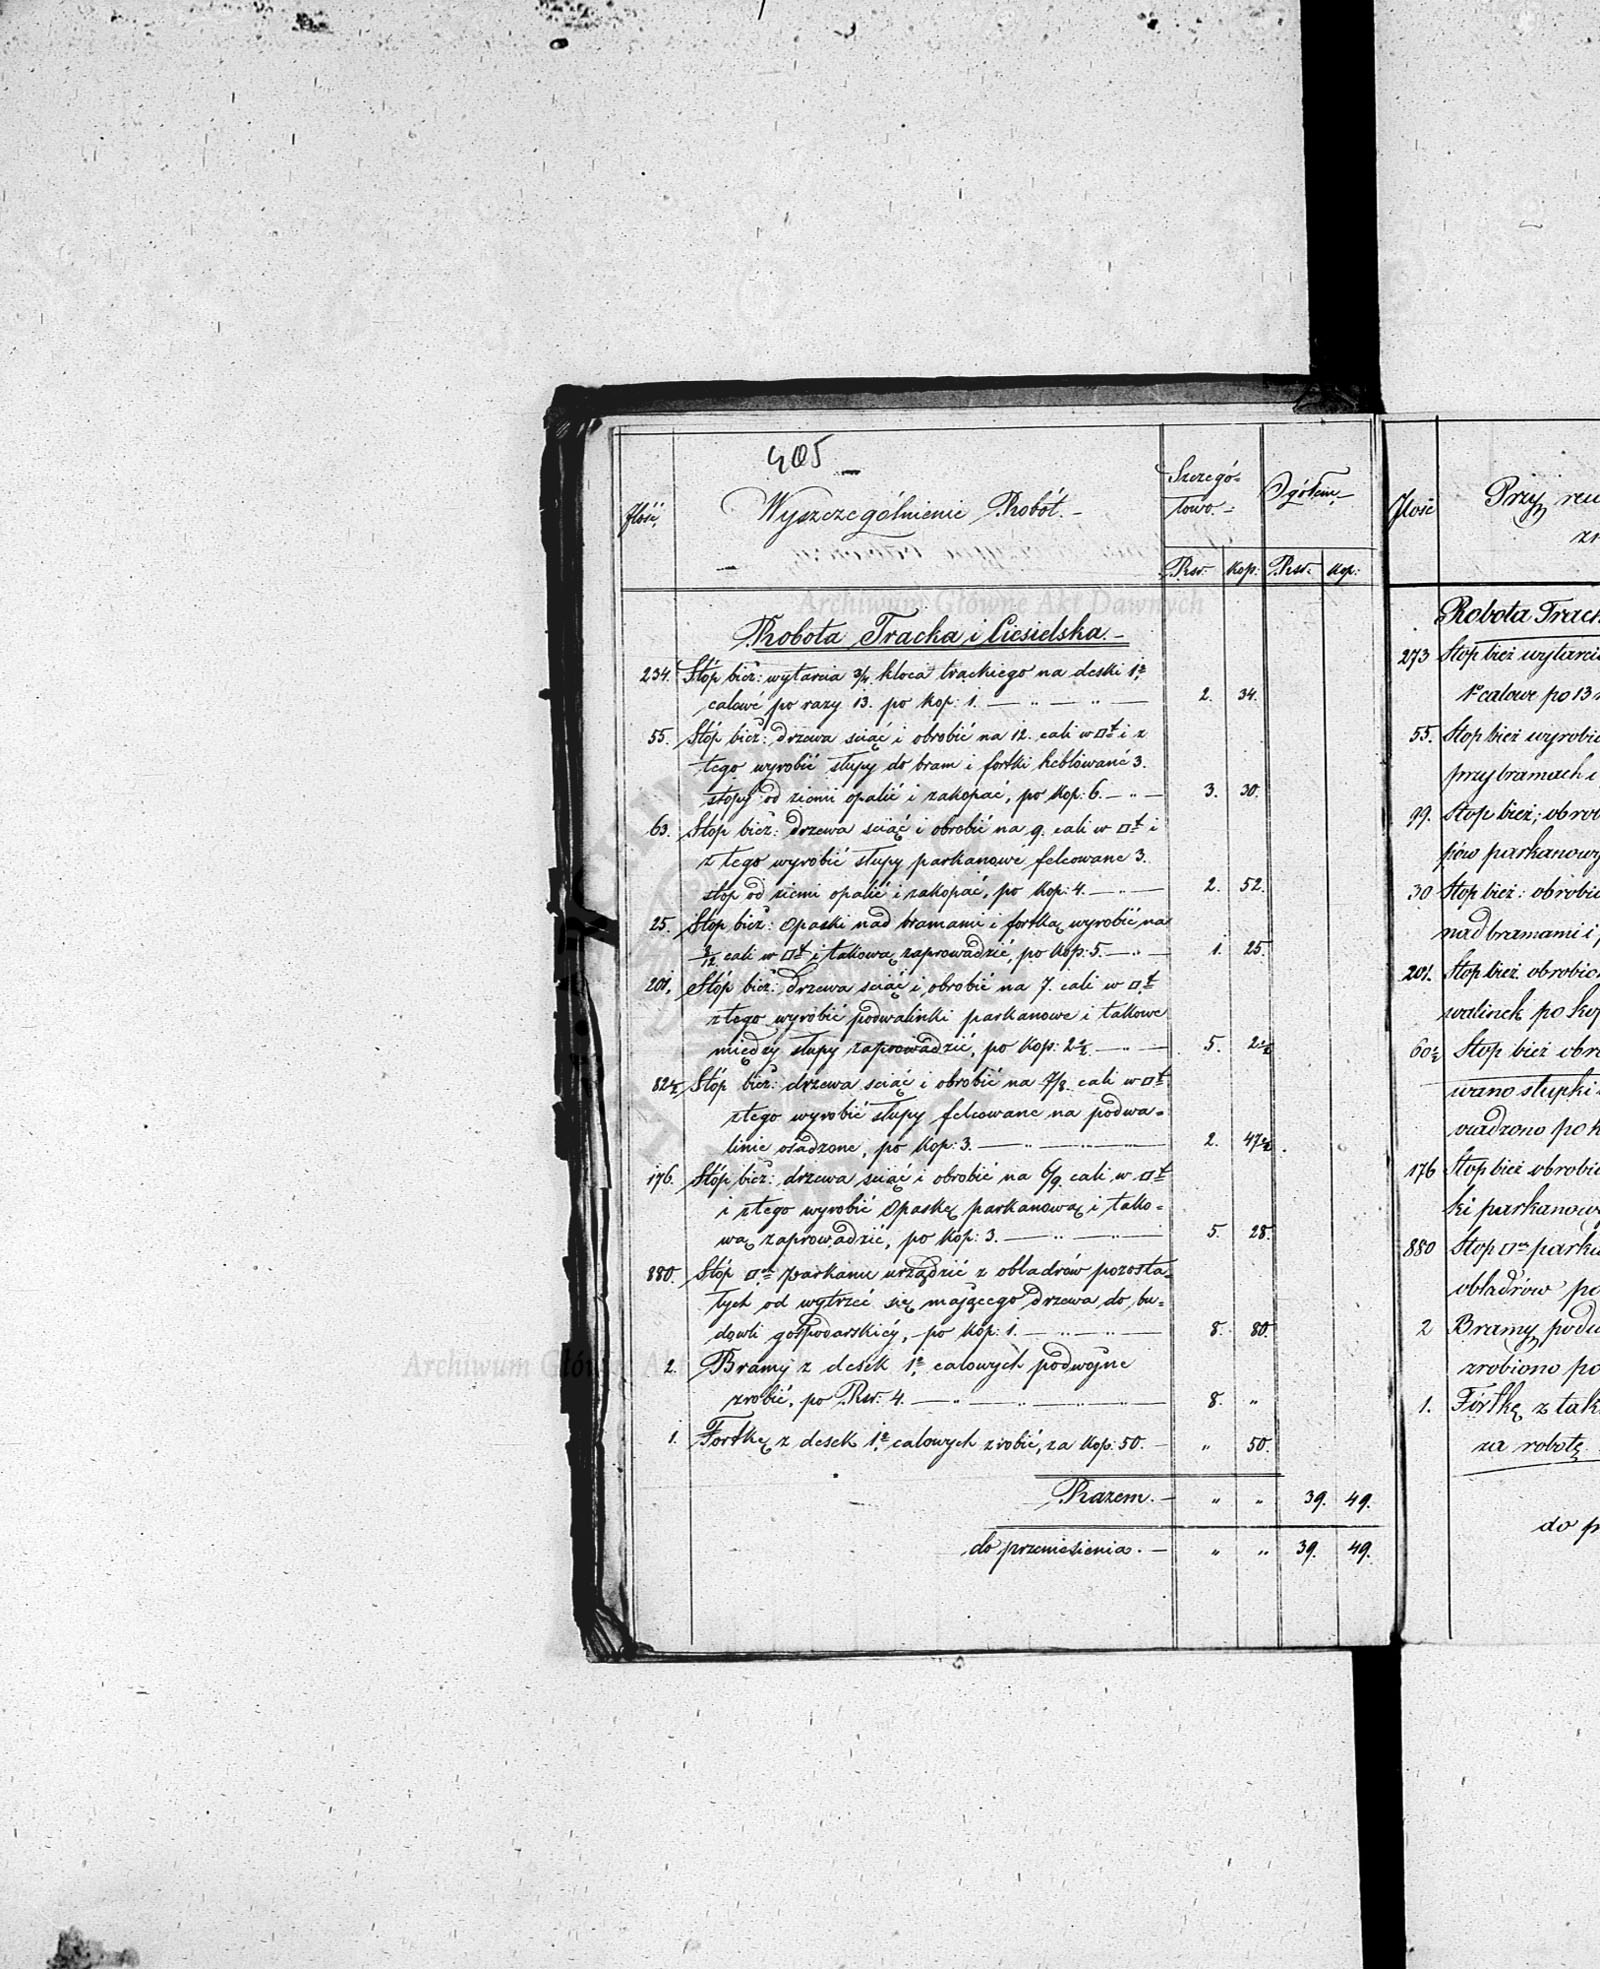 405
Ilość
Wyszczególnienie Robót.
Szczegó-
łowo.
Ogółem
Rsr. Kop: Rsr. Kop:
Archiwum Główne Akt Dawnych
Robota Tracka i Ciesielska.
234. Stóp bież: wytarcia 3/4 kloca trackiego na deski 1.
calowé po razy 13. po kop: 1. — „ — „ — 2. 34.
55. Stóp bież: drzewa sciąć i obrobić na 12. cali w □t i z
tego wyrobić słupy do bram i fortki heblowané 3.
stopy od ziemi opalić i zakopać, po Kop: 6. — „ — 3. 30.
63. Stóp bież: drzewa sciąć i obrobić na 9. cali w □t i
z tego wyrobić słupy parkanowé felcowane 3.
stop od ziemi opalić i zakopać, po Kop: 4. — „ — 2. 52.
25. Stóp bież: Opaski nad bramami i fortką wyrobić na
3/12 cali w □t i takową zaprowadzić, po Kop: 5. — „ — 1. 25.
201. Stóp bież: drzewa sciąć i obrobić na 7. cali w □t
z tego wyrobić podwalinki parkanowe i takowe
między słupy zaprowadzić, po Kop: 2½. — „ — 5. 2½
82½ Stóp bież: drzewa sciąć i obrobić na 7/8. cali w □t
z tego wyrobić słupy felcowane na podwa-
linie osadzone, po Kop: 3. — „ — „ — 2. 47½.
176. Stóp bież: drzewa sciąć i obrobić na 6/9. cali w □t
i z tego wyrobić Opaskę parkanową i tako-
wą zaprowadzić, po Kop: 3. — „ — „ — 5. 28.
880. Stóp □ parkanu urządzić z obladrów pozosta-
łych od wytrzeć się mającego drzewa do bu-
dowli gospodarskiéy, po Kop: 1. — „ — „ — 8. 80.
2. Bramy z desek 1. calowych podwojne
zrobić, po Rsr: 4. — „ — „ — „ — 8. „
Archiwum Główne Akt
1. Fortkę z desek 1. calowych zrobić, za Kop: 50. — „ 50.
Razem. — „ „ 39. 49.
do przeniesienia. — „ „ 39. 49.
Ilość
Przy
Robota Track
273 Stop bież wytarci
1 calowe po 13
55. Stop bież wyrobi
przy bramach i
99. Stop bież; obro
pów parkanowy
30 Stop bież: obrobi
nad bramami i
201. Stop bież. obrobio
walinek po Kop
60½ Stop bież obro
wano słupki
wadzono po K
176 Stop bież obrobi
ki parkanow
880 Stop □ parka
obladrów po
2 Bramy podw
zrobiono po
1. Fórtkę z tak
za robotę
do p